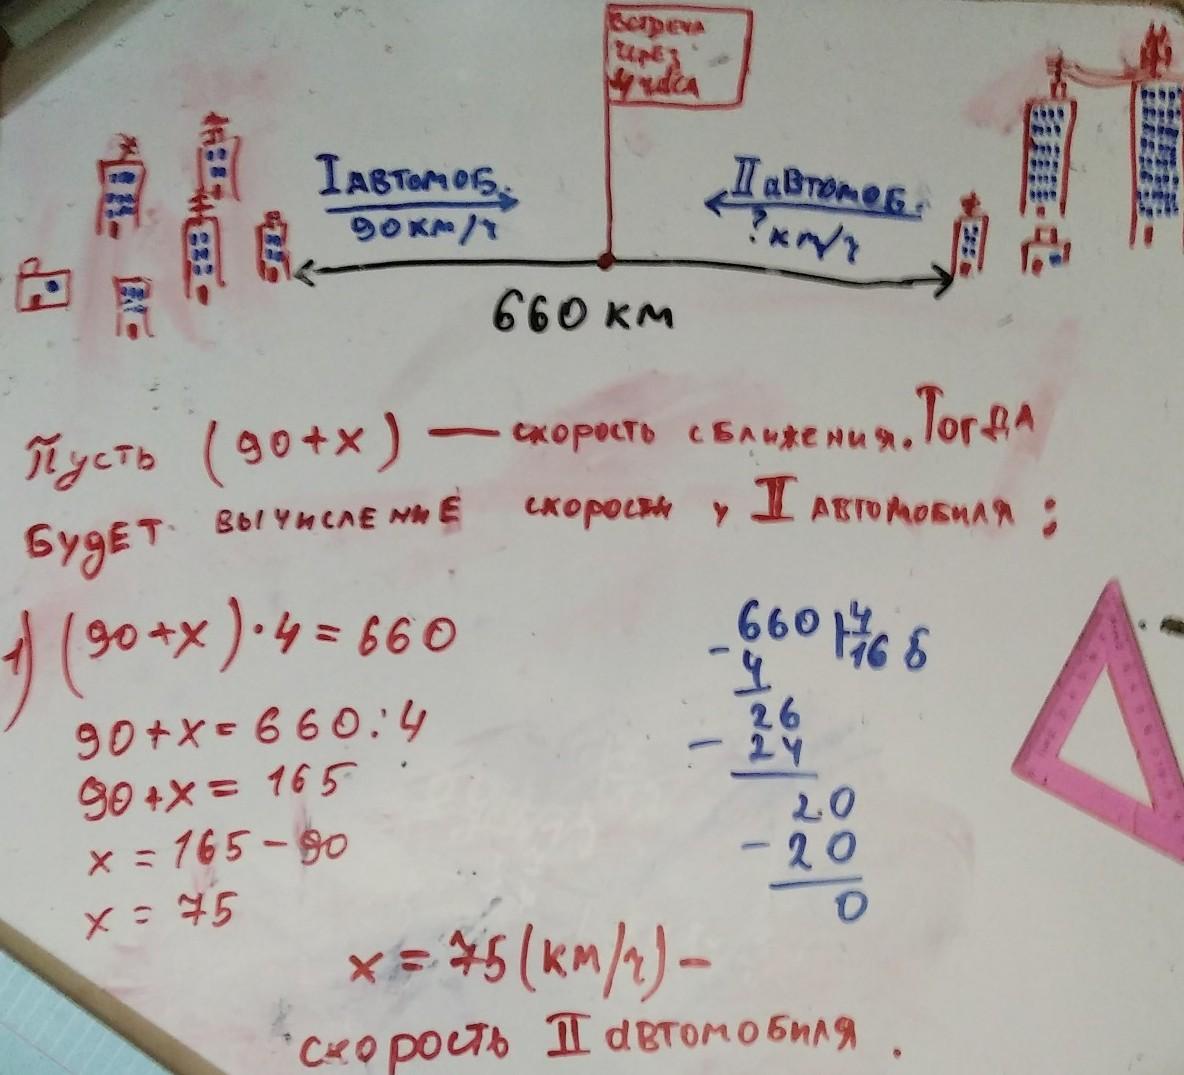 Встреча
через
4 часа
I автомоб.
90 км/ч
II автомоб.
? км/ч
660 км
Пусть (90+x) — скорость сближения. Тогда
будет вычисление скорости у II автомобиля:
1) (90+x)·4=660
90+x=660:4
90+x=165
x=165-90
x=75
660 | 4
- 4 165
26
- 24
20
- 20
0
x=75(км/ч) –
скорость II автомобиля.